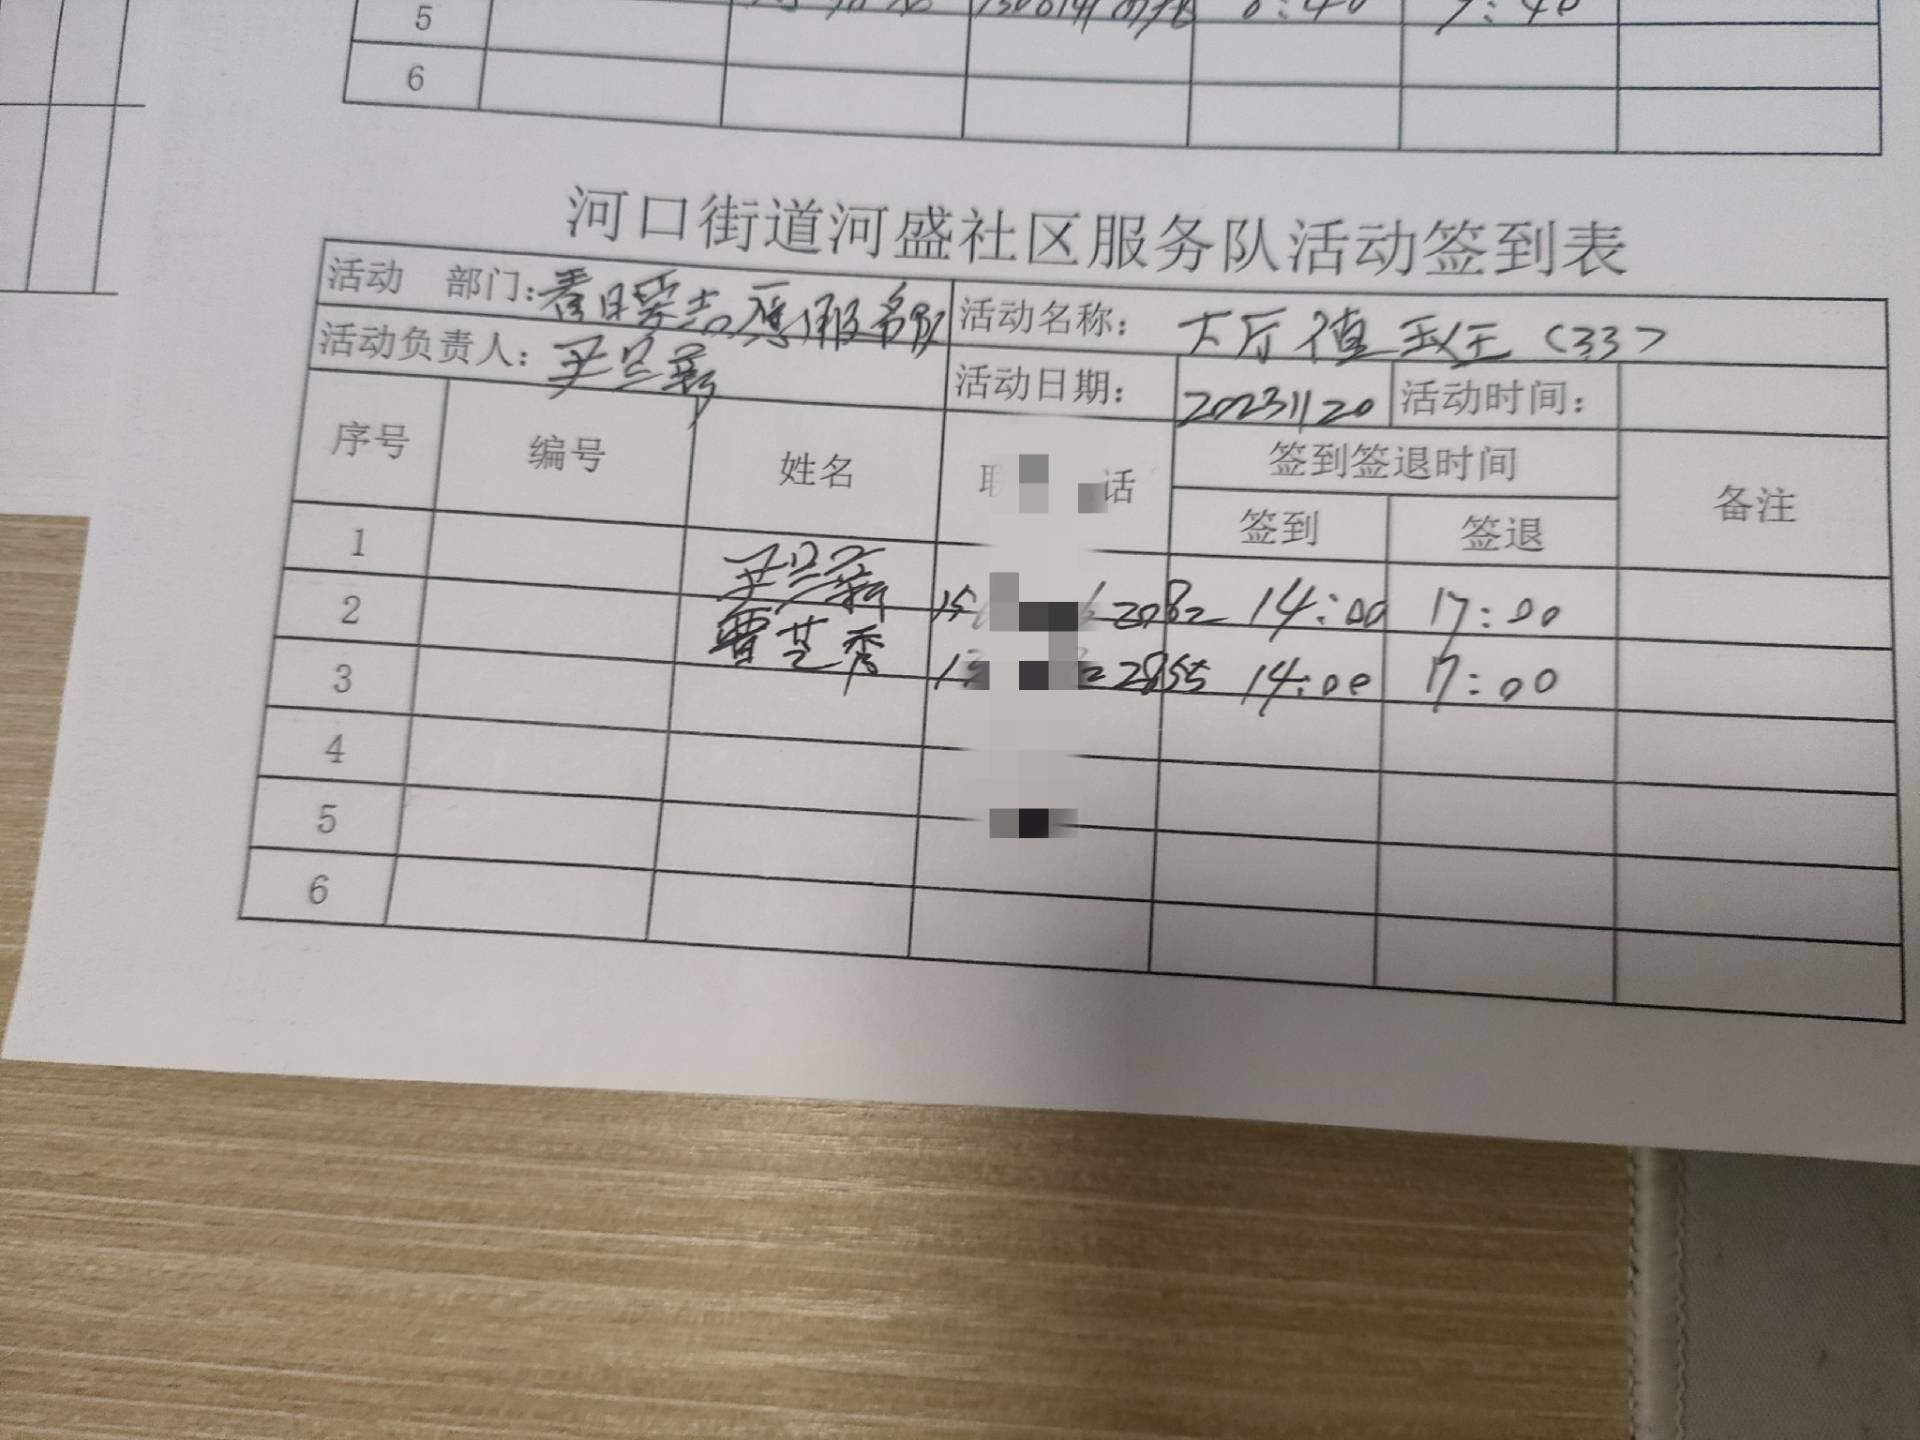 5 7:40
6
河口街道河盛社区服务队活动签到表
活动 部门:春日暖志愿服务队 活动名称: 大厅值班(33)
活动负责人:尹兰新 活动日期: 20231120 活动时间:
序号 编号 姓名 话 签到签退时间 备注
签到 签退
1 尹兰新 2082 14:00 17:00
2 曹芝秀 2855 14:00 17:00
3
4
5
6